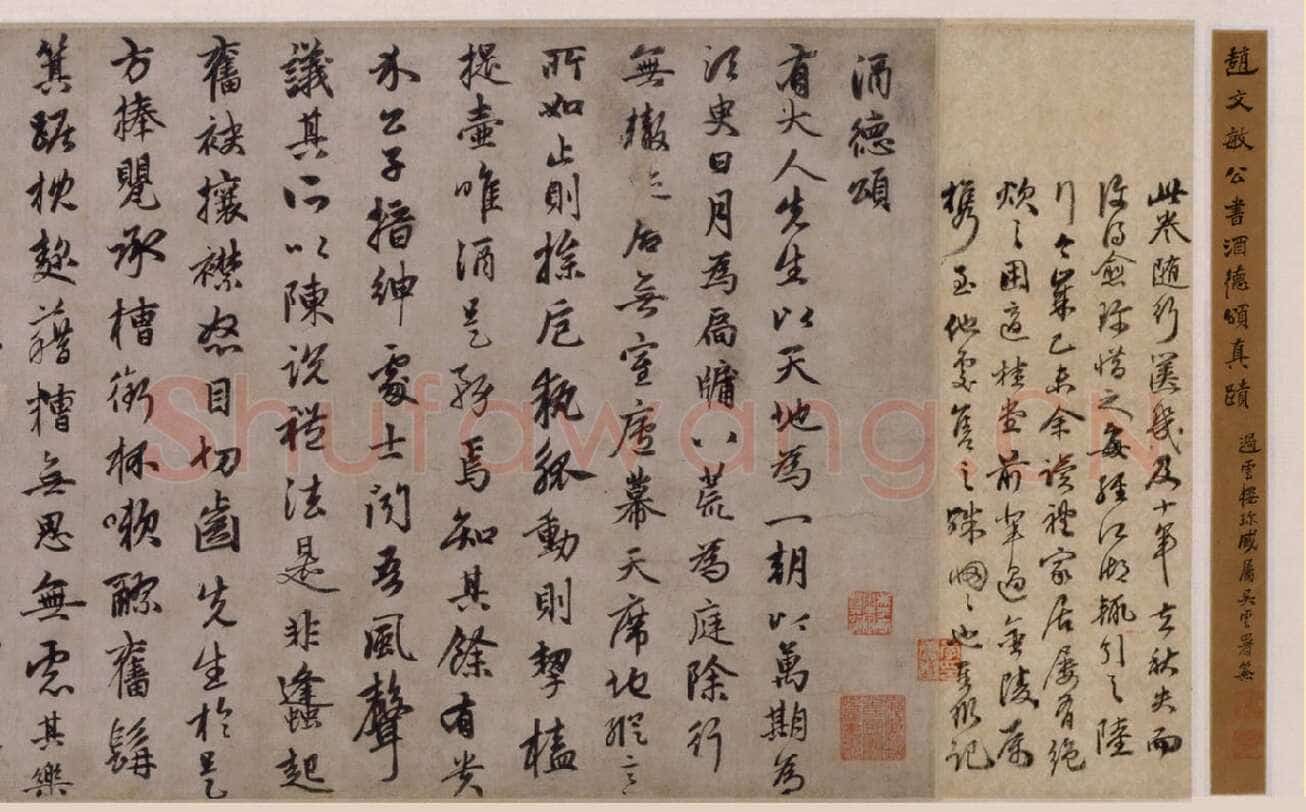 趙文敏公書酒德頌真蹟
過雲樓珍藏屬吳雲署簽
此卷隨行篋幾及十年去秋失而
復得愈珍惜之每經江湖輒引之陸
行余讀禮家居屢有絕
炊之困適桂堂前輩過金陵屬
携至他處售之殊悵々也記
酒德頌
有大人先生以天地為一朝以萬期為
須臾日月為扃牖八荒為庭除行
無轍迹居無室廬幕天席地縱意
所如止則操卮執觚動則挈榼
提壺唯酒是務焉知其餘有貴
介公子搢紳處士聞吾風聲
議其所以陳說禮法是非蜂起
奮袂攘襟怒目切齒先生於是
方捧甖承槽銜杯漱醪奮髯
箕踞枕麴藉糟無思無慮其樂
Shufawang.CN